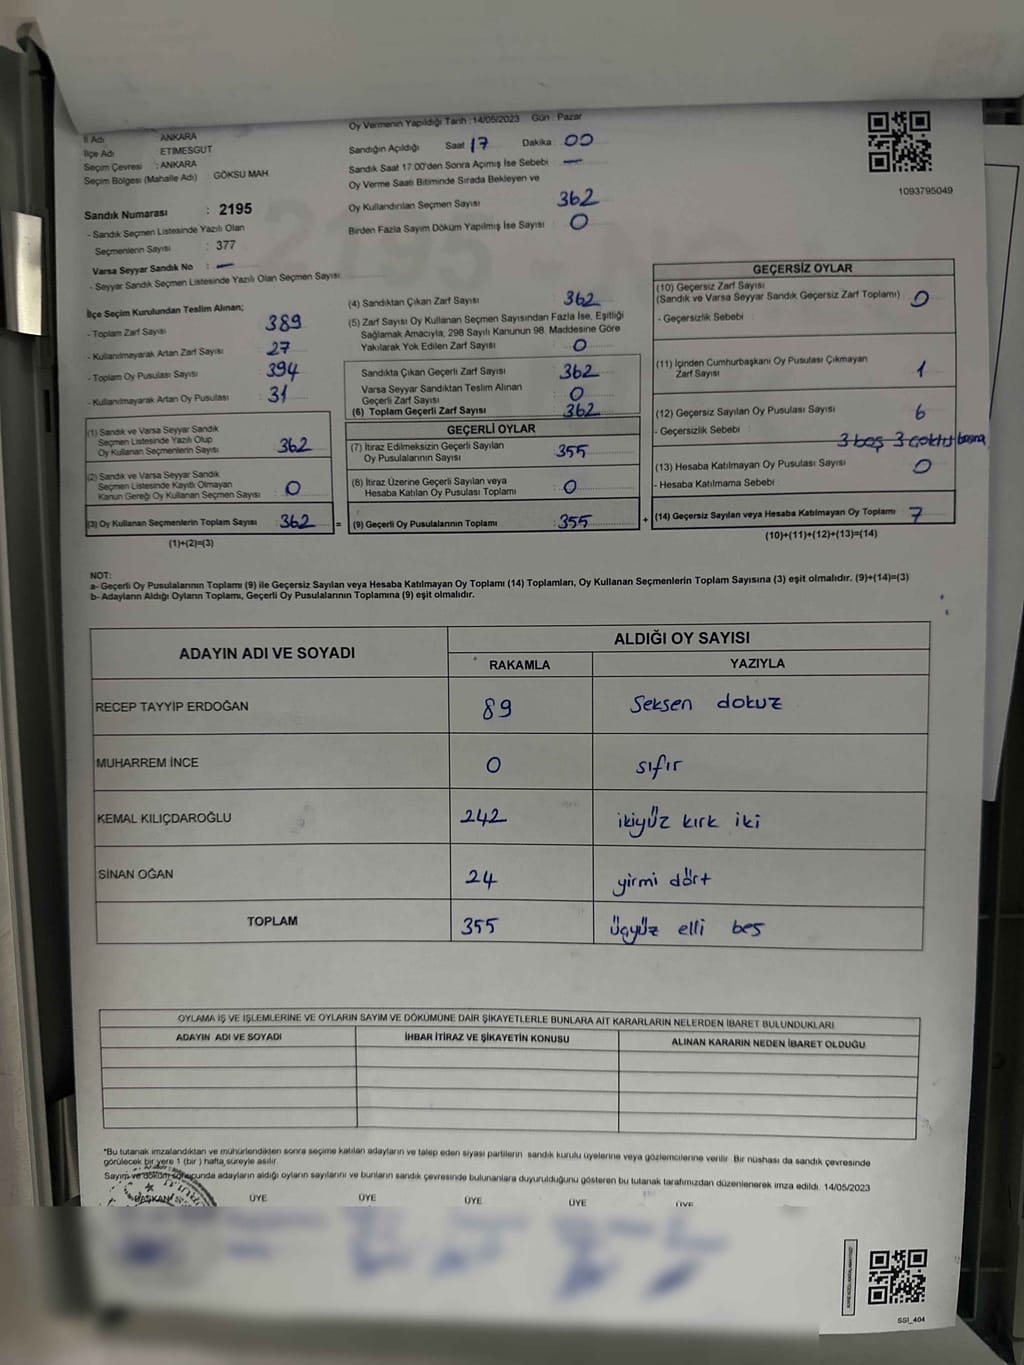 İl Adı ANKARA
İlçe Adı : ETİMESGUT
Seçim Çevresi : ANKARA
Seçim Bölgesi (Mahalle Adı) : GÖKSU MAH.
Sandık Numarası : 2195
- Sandık Seçmen Listesinde Yazılı Olan
Seçmenlerin Sayısı : 377
Varsa Seyyar Sandık No : —
- Seyyar Sandık Seçmen Listesinde Yazılı Olan Seçmen Sayısı
Oy Vermenin Yapıldığı Tarih : 14/05/2023 Gün : Pazar
Sandığın Açıldığı Saat 17 Dakika : 00
Sandık Saat 17.00'den Sonra Açımış İse Sebebi : —
Oy Verme Saati Bitiminde Sırada Bekleyen ve
Oy Kullandırılan Seçmen Sayısı 362
Birden Fazla Sayım Döküm Yapılmış İse Sayısı : 0
1093795049
İlçe Seçim Kurulundan Teslim Alınan;
- Toplam Zarf Sayısı : 389
- Kullanılmayarak Artan Zarf Sayısı : 27
- Toplam Oy Pusulası Sayısı : 394
- Kullanılmayarak Artan Oy Pusulası : 31
(1) Sandık ve Varsa Seyyar Sandık
Seçmen Listesinde Yazılı Olup
Oy Kullanan Seçmenlerin Sayısı : 362
(2) Sandık ve Varsa Seyyar Sandık
Seçmen Listesinde Kayıtlı Olmayan
Kanun Gereği Oy Kullanan Seçmen Sayısı : 0
(3) Oy Kullanan Seçmenlerin Toplam Sayısı : 362 =
(1)+(2)=(3)
(4) Sandıktan Çıkan Zarf Sayısı : 362
(5) Zarf Sayısı Oy Kullanan Seçmen Sayısından Fazla İse, Eşitliği
Sağlamak Amacıyla; 298 Sayılı Kanunun 98. Maddesine Göre
Yakılarak Yok Edilen Zarf Sayısı : 0
Sandıkta Çıkan Geçerli Zarf Sayısı : 362
Varsa Seyyar Sandıktan Teslim Alınan
Geçerli Zarf Sayısı : 0
(6) Toplam Geçerli Zarf Sayısı : 362
GEÇERLİ OYLAR
(7) İtiraz Edilmeksizin Geçerli Sayılan
Oy Pusulalarının Sayısı : 355
(8) İtiraz Üzerine Geçerli Sayılan veya
Hesaba Katılan Oy Pusulası Toplamı : 0
(9) Geçerli Oy Pusulalarının Toplamı : 355 +
GEÇERSİZ OYLAR
(10) Geçersiz Zarf Sayısı
(Sandık ve Varsa Seyyar Sandık Geçersiz Zarf Toplamı) : 0
- Geçersizlik Sebebi :
(11) İçinden Cumhurbaşkanı Oy Pusulası Çıkmayan
Zarf Sayısı : 1
(12) Geçersiz Sayılan Oy Pusulası Sayısı : 6
- Geçersizlik Sebebi : 3 boş 3 çoklu basma
(13) Hesaba Katılmayan Oy Pusulası Sayısı : 0
- Hesaba Katılmama Sebebi :
(14) Geçersiz Sayılan veya Hesaba Katılmayan Oy Toplamı : 7
(10)+(11)+(12)+(13)=(14)
NOT:
a- Geçerli Oy Pusulalarının Toplamı (9) ile Geçersiz Sayılan veya Hesaba Katılmayan Oy Toplamı (14) Toplamları, Oy Kullanan Seçmenlerin Toplam Sayısına (3) eşit olmalıdır. (9)+(14)=(3)
b- Adayların Aldığı Oyların Toplamı, Geçerli Oy Pusulalarının Toplamına (9) eşit olmalıdır.
ADAYIN ADI VE SOYADI ALDIĞI OY SAYISI
RAKAMLA YAZIYLA
RECEP TAYYİP ERDOĞAN 89 Seksen dokuz
MUHARREM İNCE 0 sıfır
KEMAL KILIÇDAROĞLU 242 ikiyüz kırk iki
SİNAN OĞAN 24 yirmi dört
TOPLAM 355 üçyüz elli beş
OYLAMA İŞ VE İŞLEMLERİNE VE OYLARIN SAYIM VE DÖKÜMÜNE DAİR ŞİKAYETLERLE BUNLARA AİT KARARLARIN NELERDEN İBARET BULUNDUKLARI
ADAYIN ADI VE SOYADI İHBAR İTİRAZ VE ŞİKAYETİN KONUSU ALINAN KARARIN NEDEN İBARET OLDUĞU
*Bu tutanak imzalandıktan ve mühürlendikten sonra seçime katılan adayların ve talep eden siyasi partilerin sandık kurulu üyelerine veya gözlemcilerine verilir. Bir nüshası da sandık çevresinde
görülecek bir yere 1 (bir) hafta süreyle asılır.
Sayım ve döküm sonucunda adayların aldığı oyların sayılarını ve bunların sandık çevresinde bulunanlara duyurulduğunu gösteren bu tutanak tarafımızdan düzenlenerek imza edildi. 14/05/2023
BAŞKAN ÜYE ÜYE ÜYE ÜYE ÜYE
SSI_404